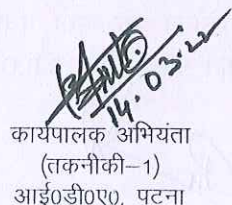 14.03.22
कार्यपालक अभियंता
(तकनीकी–1)
आई0डी0ए0, पटना